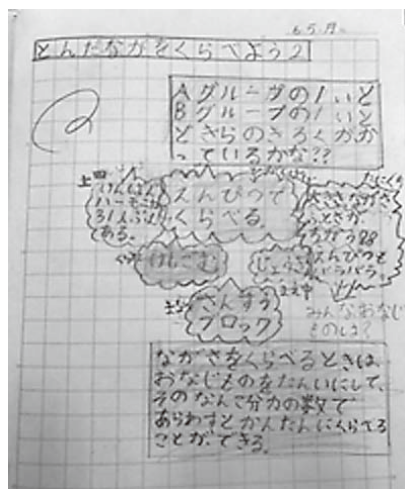 6.5月
とんだながさをくらべよう2
Aグループの1いと
Bグループの1いと
どちらのきろくがか
っているかな??
上田
けんばん
ハーモニカ
31人ぶん
ある。
えんぴつで
くらべる。
大きさながさ
ふとさが
ちがう
えんぴつも
バラバラ。
けしごむ
じょうぎ
さんすう
ブロック
みんなおなじ
ものは?
ながさをくらべるときは、
おなじものをたんいにして、
そのなんこ分カの数で
あらわすとかんたんにくらべる
ことができる。